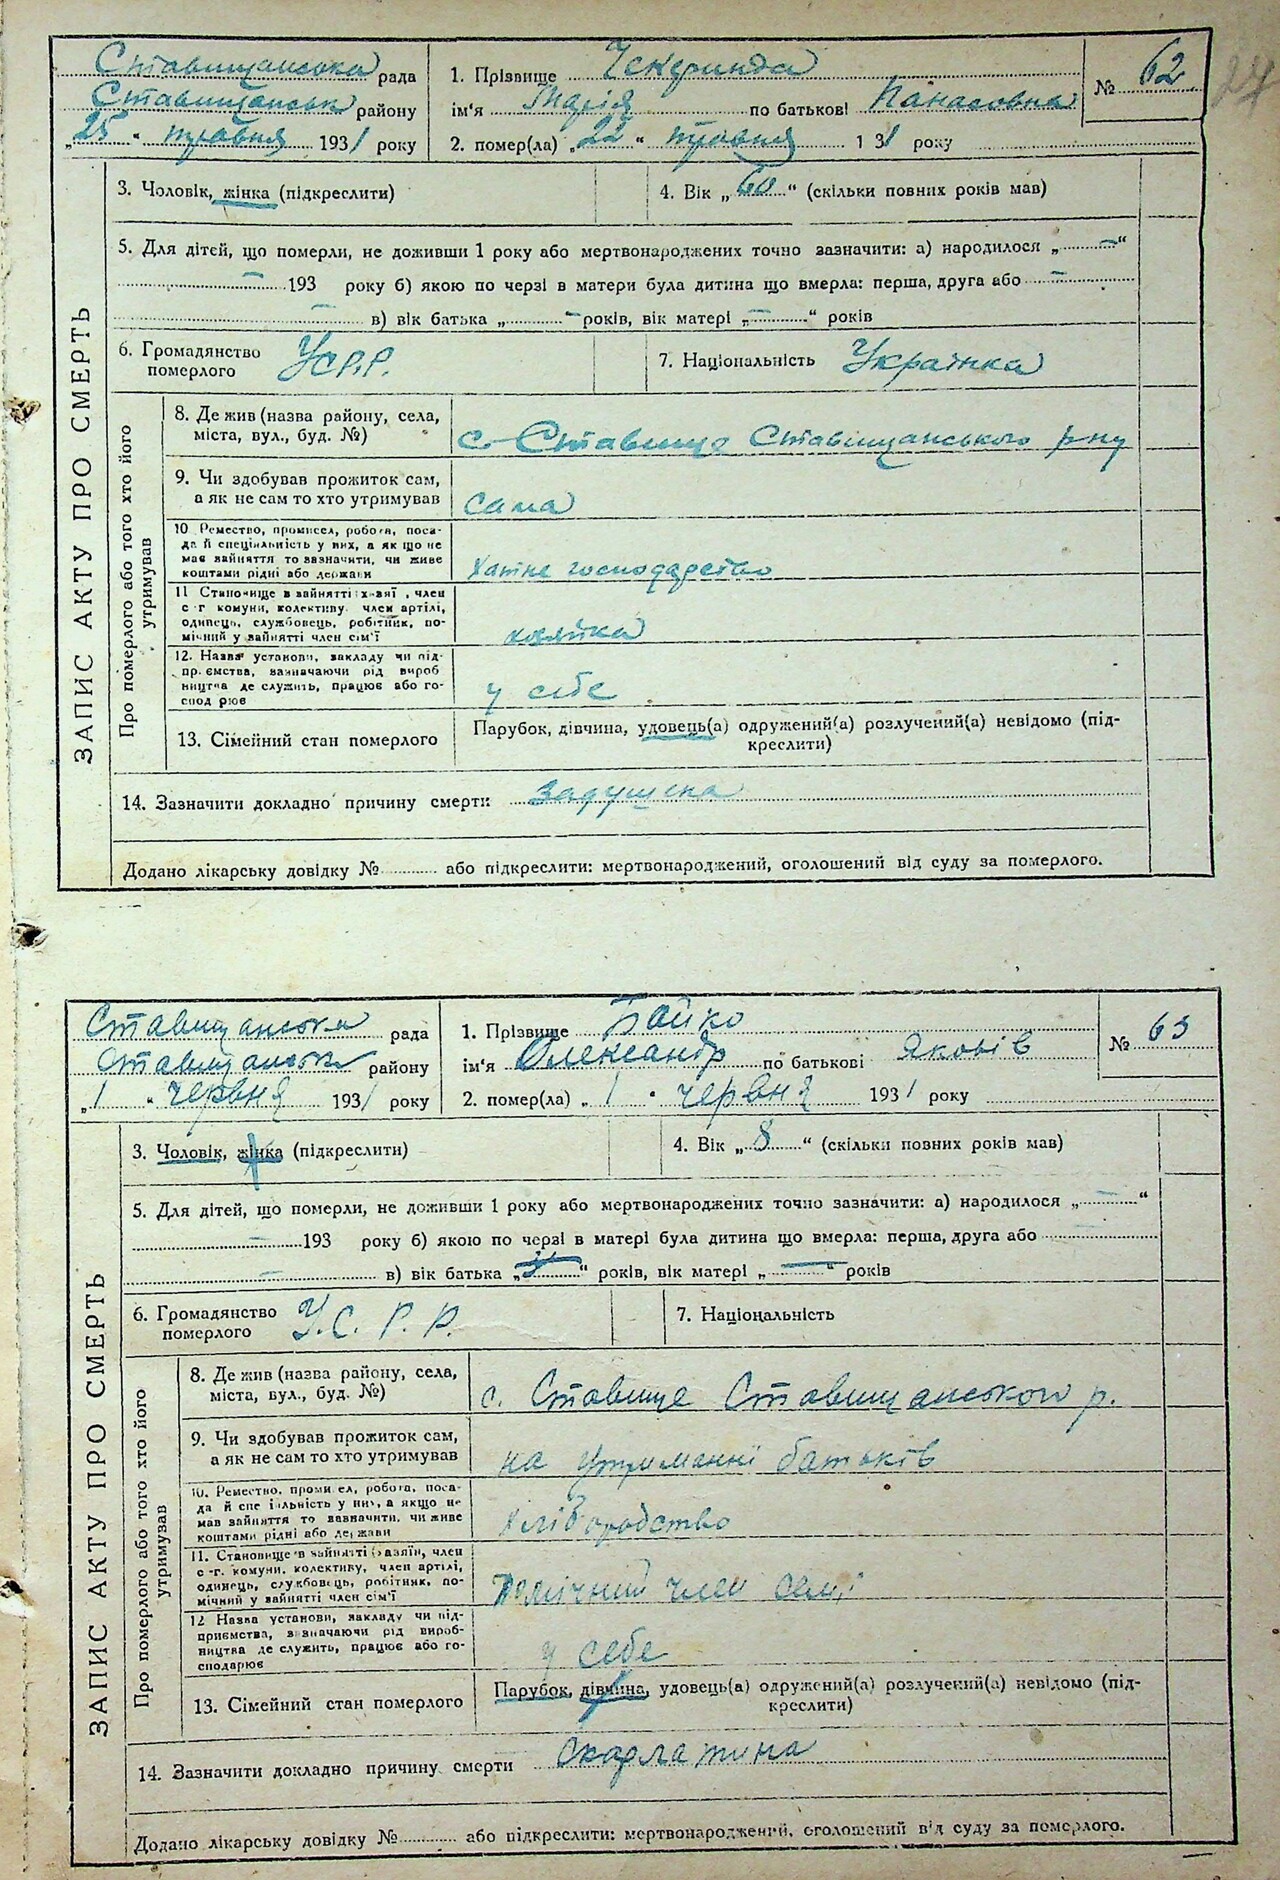 27
Ставищанська рада
Ставищанськ району
„25 “ травня 1931 року
1. Прізвище Чекеринда
ім'я Марія по батькові Панасовна
2. помер(ла) „22 “ травня 1 31 року
№ 62
ЗАПИС АКТУ ПРО СМЕРТЬ
3. Чоловік, жінка (підкреслити)
4. Вік „ 60 “ (скільки повних років мав)
5. Для дітей, що померли, не доживши 1 року або мертвонароджених точно зазначити: а) народилося „ — “
— 193 року б) якою по черзі в матери була дитина що вмерла: перша, друга або —
— в) вік батька „ — років, вік матері „ — “ років
6. Громадянство
померлого УСРР.
7. Національність Українка
Про померлого або того хто його
утримував
8. Де жив (назва району, села,
міста, вул., буд. №)
с. Ставище Ставищанського р-ну
9. Чи здобував прожиток сам,
а як не сам то хто утримував
сама
10. Ремество, промисел, робота, поса-
да й спеціяльність у них, а як що не
мав зайняття то зазначити, чи живе
коштами рідні або держави
Хатне господарство
11 Становище в зайнятті: хазяї , член
с -г комуни, колективу. член артілі,
одинець, службовець, робітник, по-
мічний у зайнятті член сім'ї
хазяйка
12. Назва установи, закладу чи під-
пр. ємства, зазначаючи рід вироб
ництва де служить, працює або го-
спод рює
у себе
13. Сімейний стан померлого
Парубок, дівчина, удовець(а) одружений(а) розлучений(а) невідомо (під-
креслити)
14. Зазначити докладно причину смерти задушена
Додано лікарську довідку № або підкреслити: мертвонароджений, оголошений від суду за померлого.
Ставищанськ рада
Ставищанськ району
„1 “ червня 1931 року
1. Прізвище Бойко
ім'я Олександр по батькові Яковів
2. помер(ла) „ 1 “ червня 1931 року
№ 63
ЗАПИС АКТУ ПРО СМЕРТЬ
3. Чоловік, жінка (підкреслити)
4. Вік „ 8 “ (скільки повних років мав)
5. Для дітей, що померли, не доживши 1 року або мертвонароджених точно зазначити: а) народилося „ — “
— 193 року б) якою по черзі в матері була дитина що вмерла: перша, друга або —
— в) вік батька „ “ років, вік матері „ — “ років
6. Громадянство
померлого У.С.Р.Р.
7. Національність
Про померлого або того хто його
утримував
8. Де жив (назва району, села,
міста, вул., буд. №)
с. Ставище Ставищанського р.
9. Чи здобував прожиток сам,
а як не сам то хто утримував
на утриманні батьків
10. Ремество, проми ел, робота, поса-
да й спе іяльність у них, а якщо не
мав зайняття то зазначити, чи живе
коштами рідні або держави
хліборобство
11. Становище в зайнятті (хазяїн, член
с -г. комуни, колективу, член артілі,
одинець, службовець, робітник, по-
мічний у зайнятті член сім'ї
Помічний член семї
12 Назва установи, закладу чи під-
приємства, зазначаючи рід вироб-
ництва де служить, працює або го-
сподарює
у себе
13. Сімейний стан померлого
Парубок, дівчина, удовець(а) одружений(а) розлучений(а) невідомо (під-
креслити)
14. Зазначити докладно причину смерти Скарлатина
Додано лікарську довідку № або підкреслити: мертвонароджений, оголошений від суду за померлого.